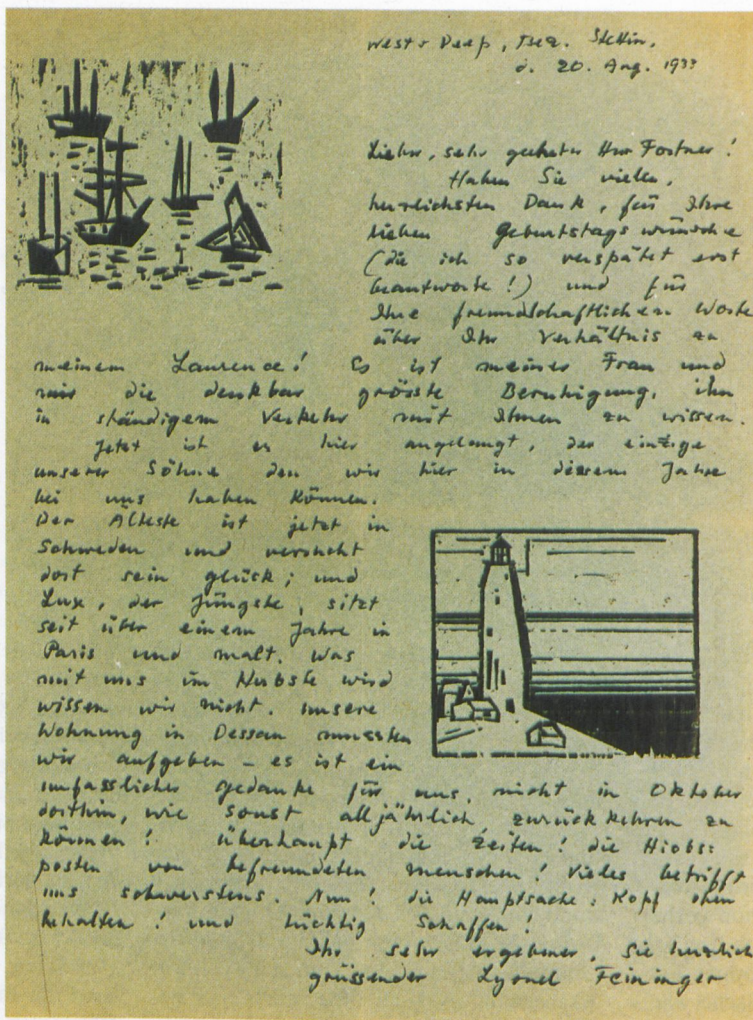 West-Deep, Bez. Stettin.
d. 20. Aug. 1933
Lieber, sehr geehrter Herr Fortner!
Haben Sie vielen,
herzlichsten Dank, für Ihre
lieben Geburtstagswünsche
(die ich so verspätet erst
beantworte!) und für
Ihre freundschaftlichen Worte
über Ihr Verhältnis zu
meinem Laurence! Es ist meiner Frau und
mir die denkbar grösste Beruhigung, ihn
in ständigem Verkehr mit Ihnen zu wissen.
Jetzt ist er hier angelangt, der einzige
unserer Söhne den wir hier in diesem Jahre
bei uns haben können.
Der Älteste ist jetzt in
Schweden und versucht
dort sein glück; und
Lux, der Jüngste, sitzt
seit über einem Jahre in
Paris und malt. Was
mit uns im Herbste wird
wissen wir nicht. Unsere
Wohnung in Dessau mussten
wir aufgeben – es ist ein
unfasslicher gedanke für uns, nicht in Oktober
dorthin, wie sonst alljährlich zurückkehren zu
können! überhaupt die Zeiten! die Hiobs:
posten von befreundeten Menschen! Vieles betrifft
uns schwerstens. Nun! die Hauptsache: Kopf oben
behalten! und tüchtig Schaffen!
Ihr sehr ergebener, Sie herzlich
grüssender Lyonel Feininger